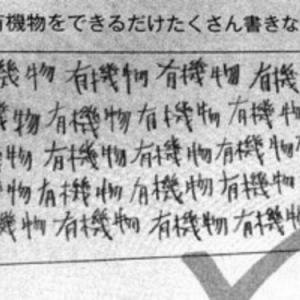 有機物をできるだけたくさん書きな
機物 有機物 有機物 有機
機物 有機物 有機物 有機物
物 有機物 有機物 有機物
物 有機物 有機物 有機物
機物 有機物 有機物 有機物